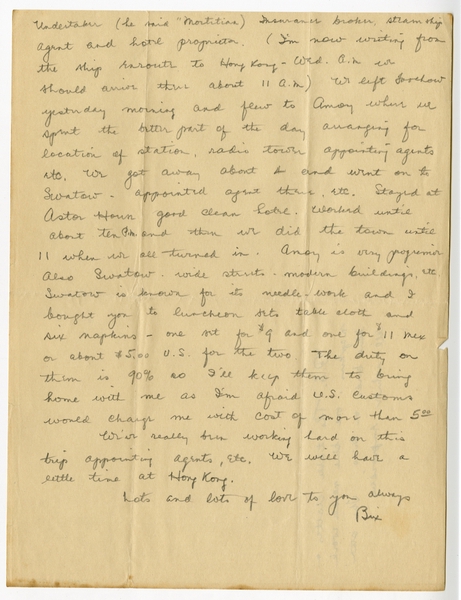 Undertaker (he said "Mortitian) Insurance broker, steamship
agent and hotel proprietor. (I'm now writing from
the ship enroute to Hong Kong - Wed. A.M we
should arrive there about 11 A.M) We left Foochow
yesterday morning and flew to Amoy where we
spent the better part of the day arranging for
location of station, radio tower appointing agents
etc. We got away about 4 and went on to
Swatow - appointed agent there, etc. Stayed at
Astor House good clean hotel. Worked until
about ten P.M. and then we did the town until
11 when we all turned in. Amoy is very progressive
Also Swatow. wide streets - modern buildings, etc.
Swatow is known for its needle-work and I
bought you to luncheon sets table cloth and
six napkins - one set for $9 and one for $11 Mex
or about $5.00 U.S. for the two. The duty on
them is 90% so I'll keep them to bring
home with me as I'm afraid U.S. Customs
would charge me with cost of more than 5.00
We've really been working hard on this
trip appointing agents, etc. We will have a
little time at Hong Kong.
Lots and lots of love to you always
Bix